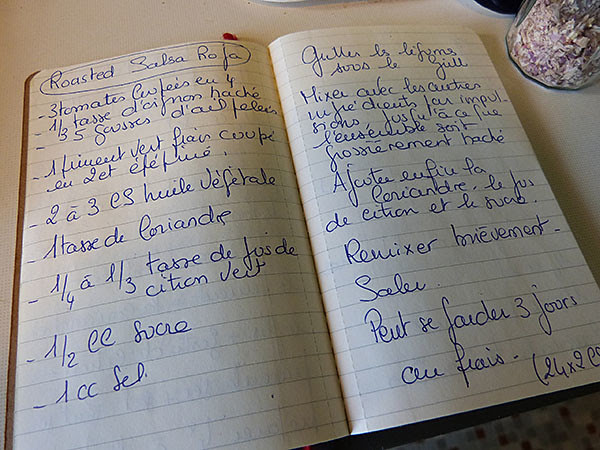 Roasted Salsa Roja
- 3 tomates coupées en 4
- 1/3 tasse d'oignon haché
- 3 5 gousses d'ail pelées
- 1 piment vert frais coupé
en 2 et épépiné.
- 2 à 3 CS huile végétale
- 1 tasse de Coriandre
- 1/4 à 1/3 tasse de jus de
citron vert
- 1/2 CC sucre
- 1 cc Sel.
Griller les légumes
sous le grill
Mixer avec les autres
ingrédients par impul-
sions jusqu'à ce que
l'ensemble soit
grossièrement haché
Ajouter enfin la
Coriandre, le jus
de citron et le sucre.
Remixer brièvement.
Saler.
Peut se garder 3 jours
au frais.
(24x2C